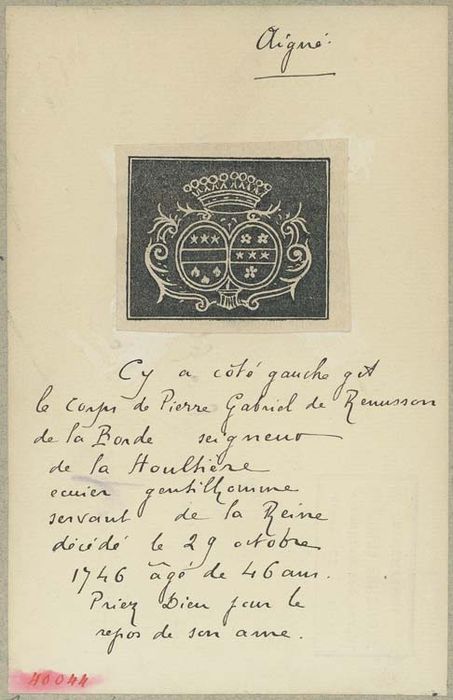 Aigné.
Cy a côté gauche git
le corps de Pierre Gabriel de Renusson
de la Borde seigneur
de la Houltière
ecuier gentilhomme
servant de la Reine
décédé le 29 octobre
1746 âgé de 46 ans.
Priez Dieu pour le
repos de son ame.
40044